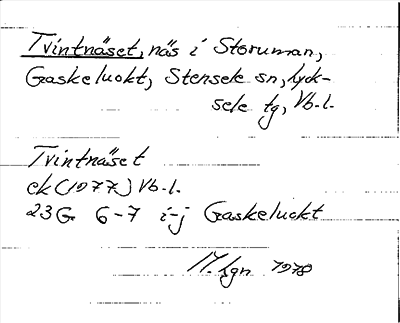 Tvintnäset, näs i Storuman,
Gaskeluokt, Stensele sn, Lyck-
sele tg, Vb-l.
Tvintnäset
ek (1977) Vb-l.
23G 6-7 i-j Gaskeluokt
lgn 1978